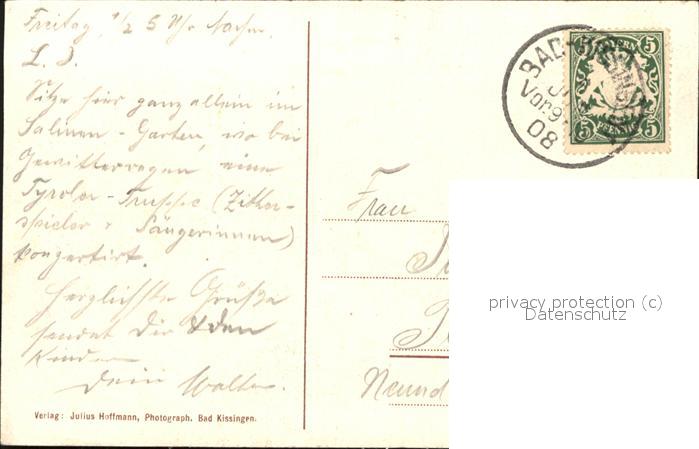 Freitag, 1/2 5 Uhr Nachm.
L. I.
Sitze hier ganz allein im
Salinen-Garten, wo bei
Gewitterregen eine
Tyroler-Truppe (Zither-
spieler & Sängerinnen)
konzertirt.
Herzlichste Grüße
sendet Dir & den
Kindern
Dein Walter.
Verlag: Julius Hoffmann, Photograph. Bad Kissingen.
BAD-
Vor. 9-
08
5 BAYERN 5
5 PFENNIG 5
Frau
Neund
privacy protection (c)
Datenschutz